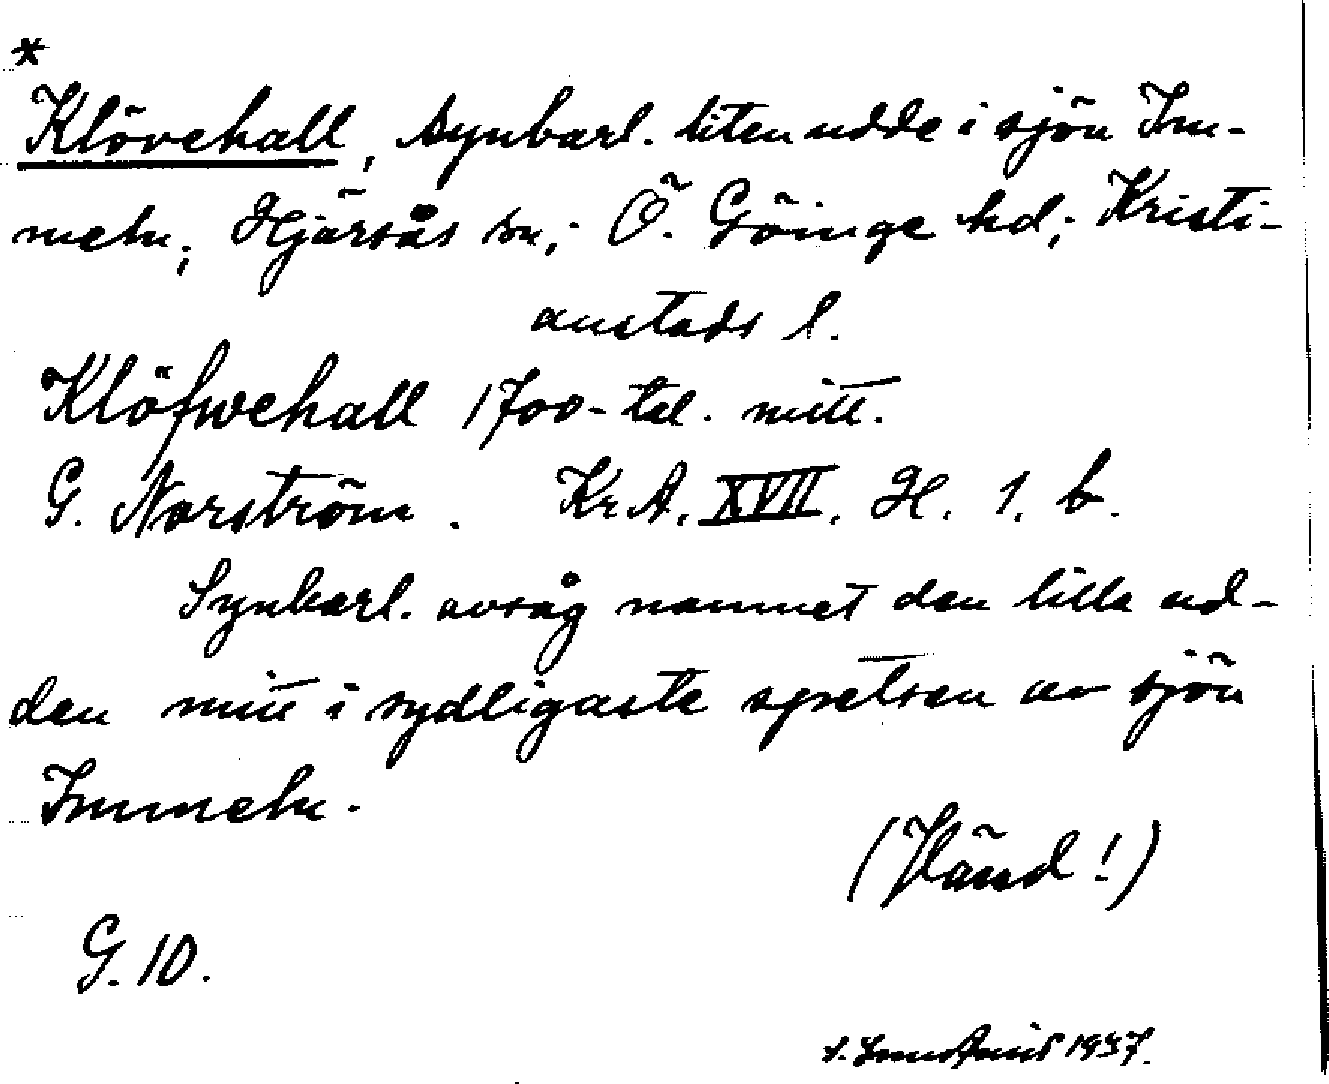 *
Klövehall, synbarl. liten udde i sjön Im-
meln, Hjärsås sn, Ö. Göinge hd, Kristi-
anstads l.
Klöfwehall 1700-tal. mitt.
G. Norström. Kr.A. XVII. H. 1. b.
Synbarl. avsåg namnet den lilla ud-
den mitt i sydligaste spetsen av sjön
Immeln.
(Vänd!)
G. 10.
1937.